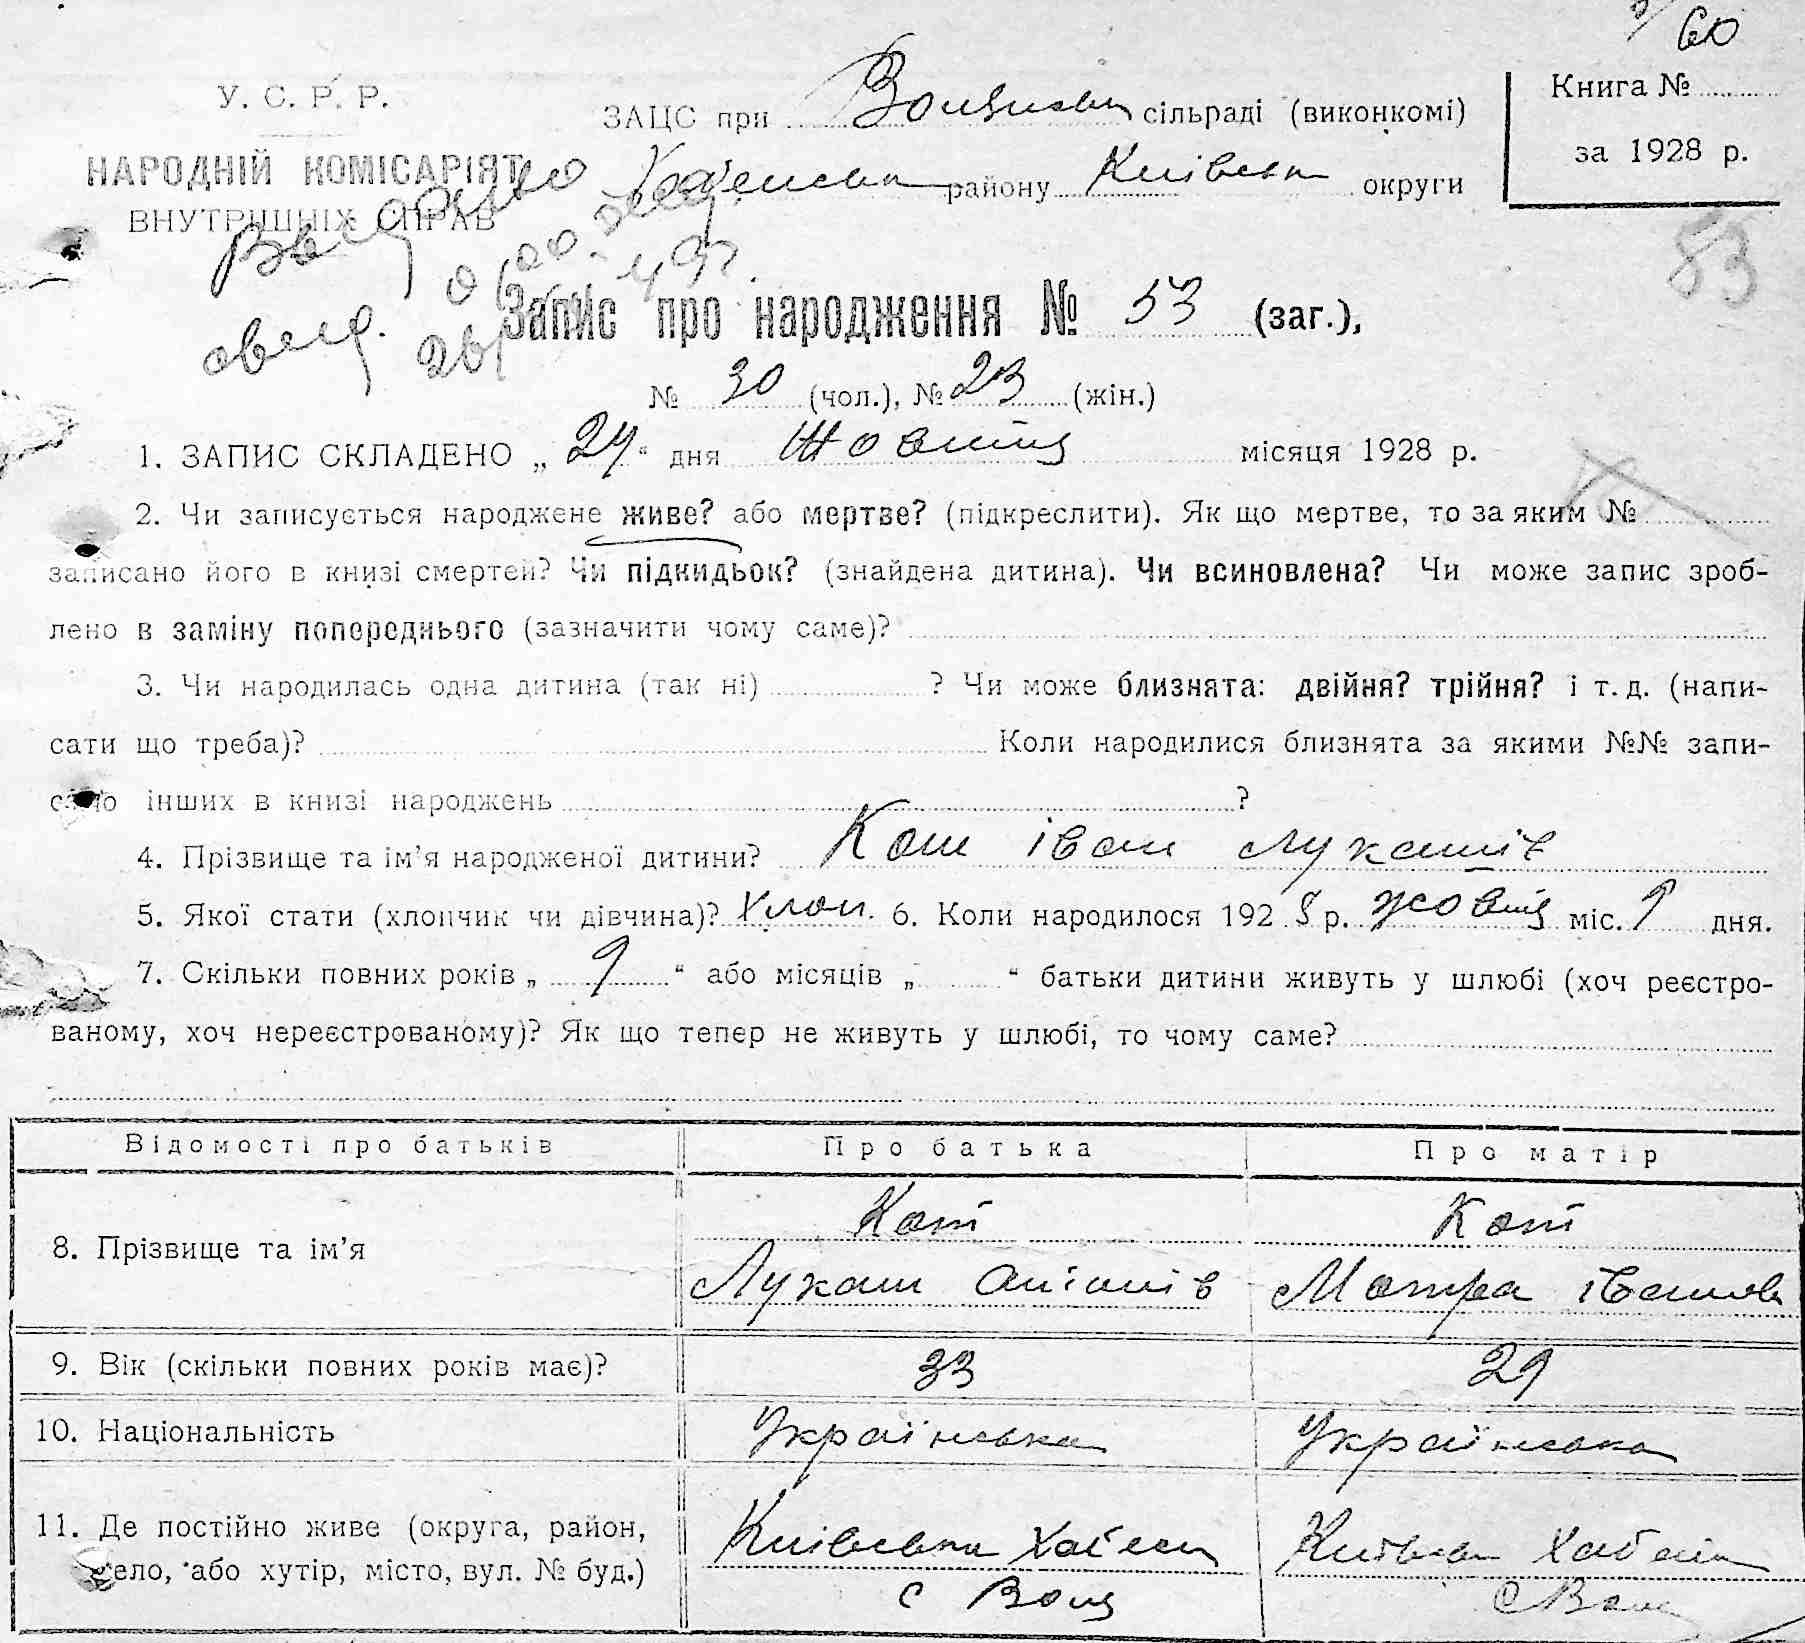 60
У. С. Р. Р.
НАРОДНІЙ КОМІСАРІЯТ
ВНУТРІШНІХ СПРАВ
ЗАЦС при сільраді (виконкомі)
району Київська округи
Книга №
за 1928 р.
83
Запис про народження № 53 (заг.),
№ 30 (чол.), № 23 (жін.)
1. ЗАПИС СКЛАДЕНО „ 24 “ дня Жовтня місяця 1928 р.
2. Чи записується народжене живе? або мертве? (підкреслити). Як що мертве, то за яким №
записано його в книзі смертей? Чи підкидьок? (знайдена дитина). Чи всиновлена? Чи може запис зроб-
лено в заміну попереднього (зазначити чому саме)?
3. Чи народилась одна дитина (так ні) ? Чи може близнята: двійня? трійня? і т. д. (напи-
сати що треба)? Коли народилися близнята за якими №№ запи-
сано інших в книзі народжень ?
4. Прізвище та ім’я народженої дитини? Кот Іван Лукашів
5. Якої стати (хлопчик чи дівчина)? Хлоп. 6. Коли народилося 192 8 р. жовтня міс. 9 дня.
7. Скільки повних років „ 9 “ або місяців „ “ батьки дитини живуть у шлюбі (хоч реєстро-
ваному, хоч нереєстрованому)? Як що тепер не живуть у шлюбі, то чому саме?
Відомості про батьків Про батька Про матір
8. Прізвище та ім’я
Кот Кот
Лукаш Мотря
9. Вік (скільки повних років має)? 33 29
10. Національність Українська Українська
11. Де постійно живе (округа, район,
село, або хутір, місто, вул. № буд.)
Київська
с